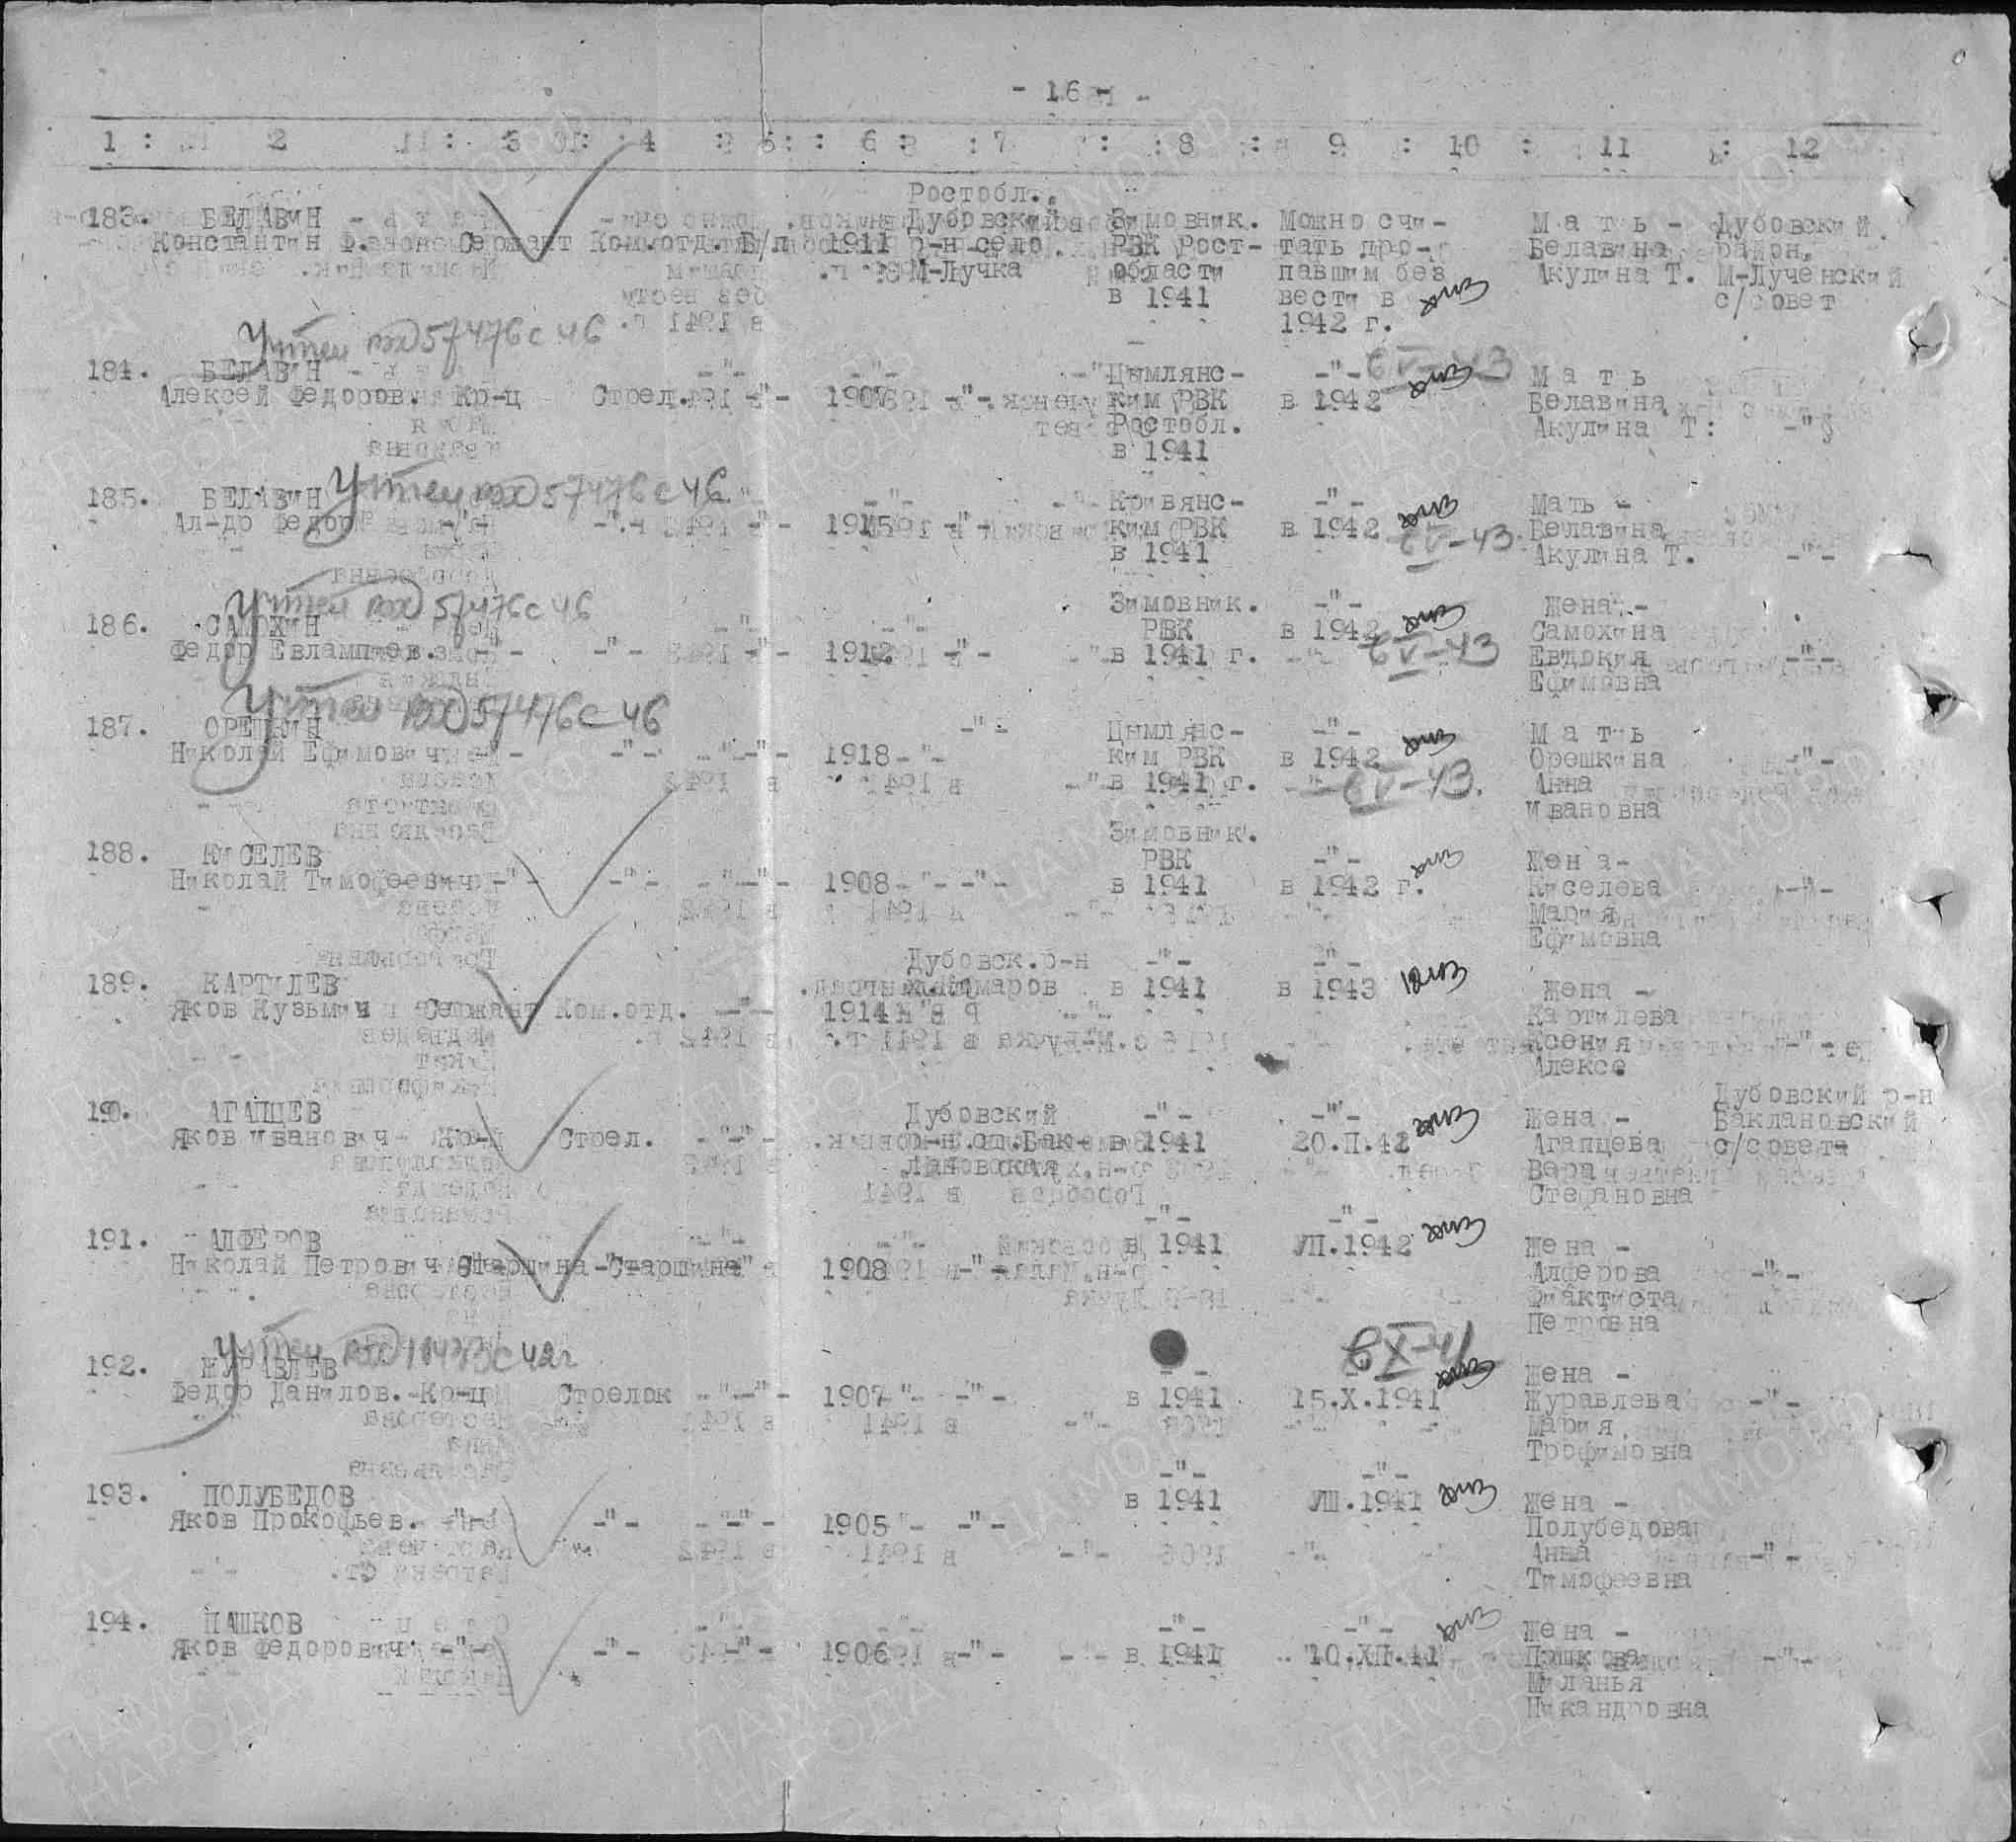 - 16 -
1 : 2 : 3 : 4 : 5 : 6 : 7 : 8 : 9 : 10 : 11 : 12
Ростобл.,
183. БЕЛАВИН - Дубовский Зимовник. Можно счи- М а т ь - Дубовский
Константин Ф. Сержант Ком.отд. Б/п 1911 р-н село РВК Рост- тать про- Белавина район,
М-Лучка области павшим без Акулина Т. М-Лученский
в 1941 вести в с/совет
1942 г.
Учтен вх 57476с 46
184. БЕЛАВИН -"- -"- Цымлянс- -"- в V-43 М а т ь
Алексей Федоров. Кр-ц Стрел. -"- 1907 -"- ким РВК в 1942 Белавина
Ростобл. Акулина Т. -"-
в 1941
Учтен вх 57476с 46
185. БЕЛАВИН -"- Кривянс- -"- Мать -
Ал-др Федор. -"- -"- -"- 1915 -"- ким РВК в 1942 в V-43 Белавина
в 1941 Акулина Т. -"-
Учтен вх 57476с 46
Зимовник. -"- Жена -
186. САМОХИН -"- -"- РВК в 1942 Самохина
Федор Евлампиев. -"- -"- -"- 1912 -"- в 1941 г. в V-43 Евдокия -"-
Ефимовна
Учтен вх 57476с 46
187. ОРЕШКИН -"- Цымлянс- -"- М а т ь
Николай Ефимович -"- -"- -"- 1918 -"- ким РВК в 1942 Орешкина -"-
в 1941 г. в V-43. Анна
Ивановна
Зимовник.
188. КИСЕЛЕВ РВК -"- Жена -
Николай Тимофеевич -"- -"- -"- 1908 -"- -"- в 1941 в 1942 г. Киселева -"-
Мария
Ефимовна
Дубовск.р-н -"- -"-
189. КАРТИЛЕВ х.Комаров в 1941 в 1943 Жена -
Яков Кузьмич Сержант Ком.отд. -"- 1914 Картилева
Ксения -"-
Алексе.
Дубовский р-н
190. АГАПЦЕВ Дубовский -"- -"- Жена - Баклановский
Яков Иванович Кр-ц Стрел. -"- р-н.ст.Бак- в 1941 20.П.42 Агапцева с/совета
лановская Вера
Степановна
-"- -"-
191. АЛФЕРОВ -"- -"- в 1941 УП.1942 Жена -
Николай Петрович Старшина Старшина 1908 -"- Алферова -"-
Фиактиста
Петровна
Учтен вх с 42г в X-41
192. ЖУРАВЛЕВ -"- Жена -
Федор Данилов. Кр-ц Стрелок -"- 1907 -"- -"- в 1941 15.Х.1941 Журавлева -"-
Мария
Трофимовна
-"- -"-
193. ПОЛУБЕДОВ в 1941 УШ.1941 Жена -
Яков Прокофьев. -"- -"- -"- 1905 -"- -"- Полубедова
Анна -"-
Тимофеевна
194. ПАШКОВ -"- -"- Жена -
Яков Федорович -"- -"- -"- 1906 -"- в 1941 10.ХП.41 Пашкова -"-
Миланья
Никандровна